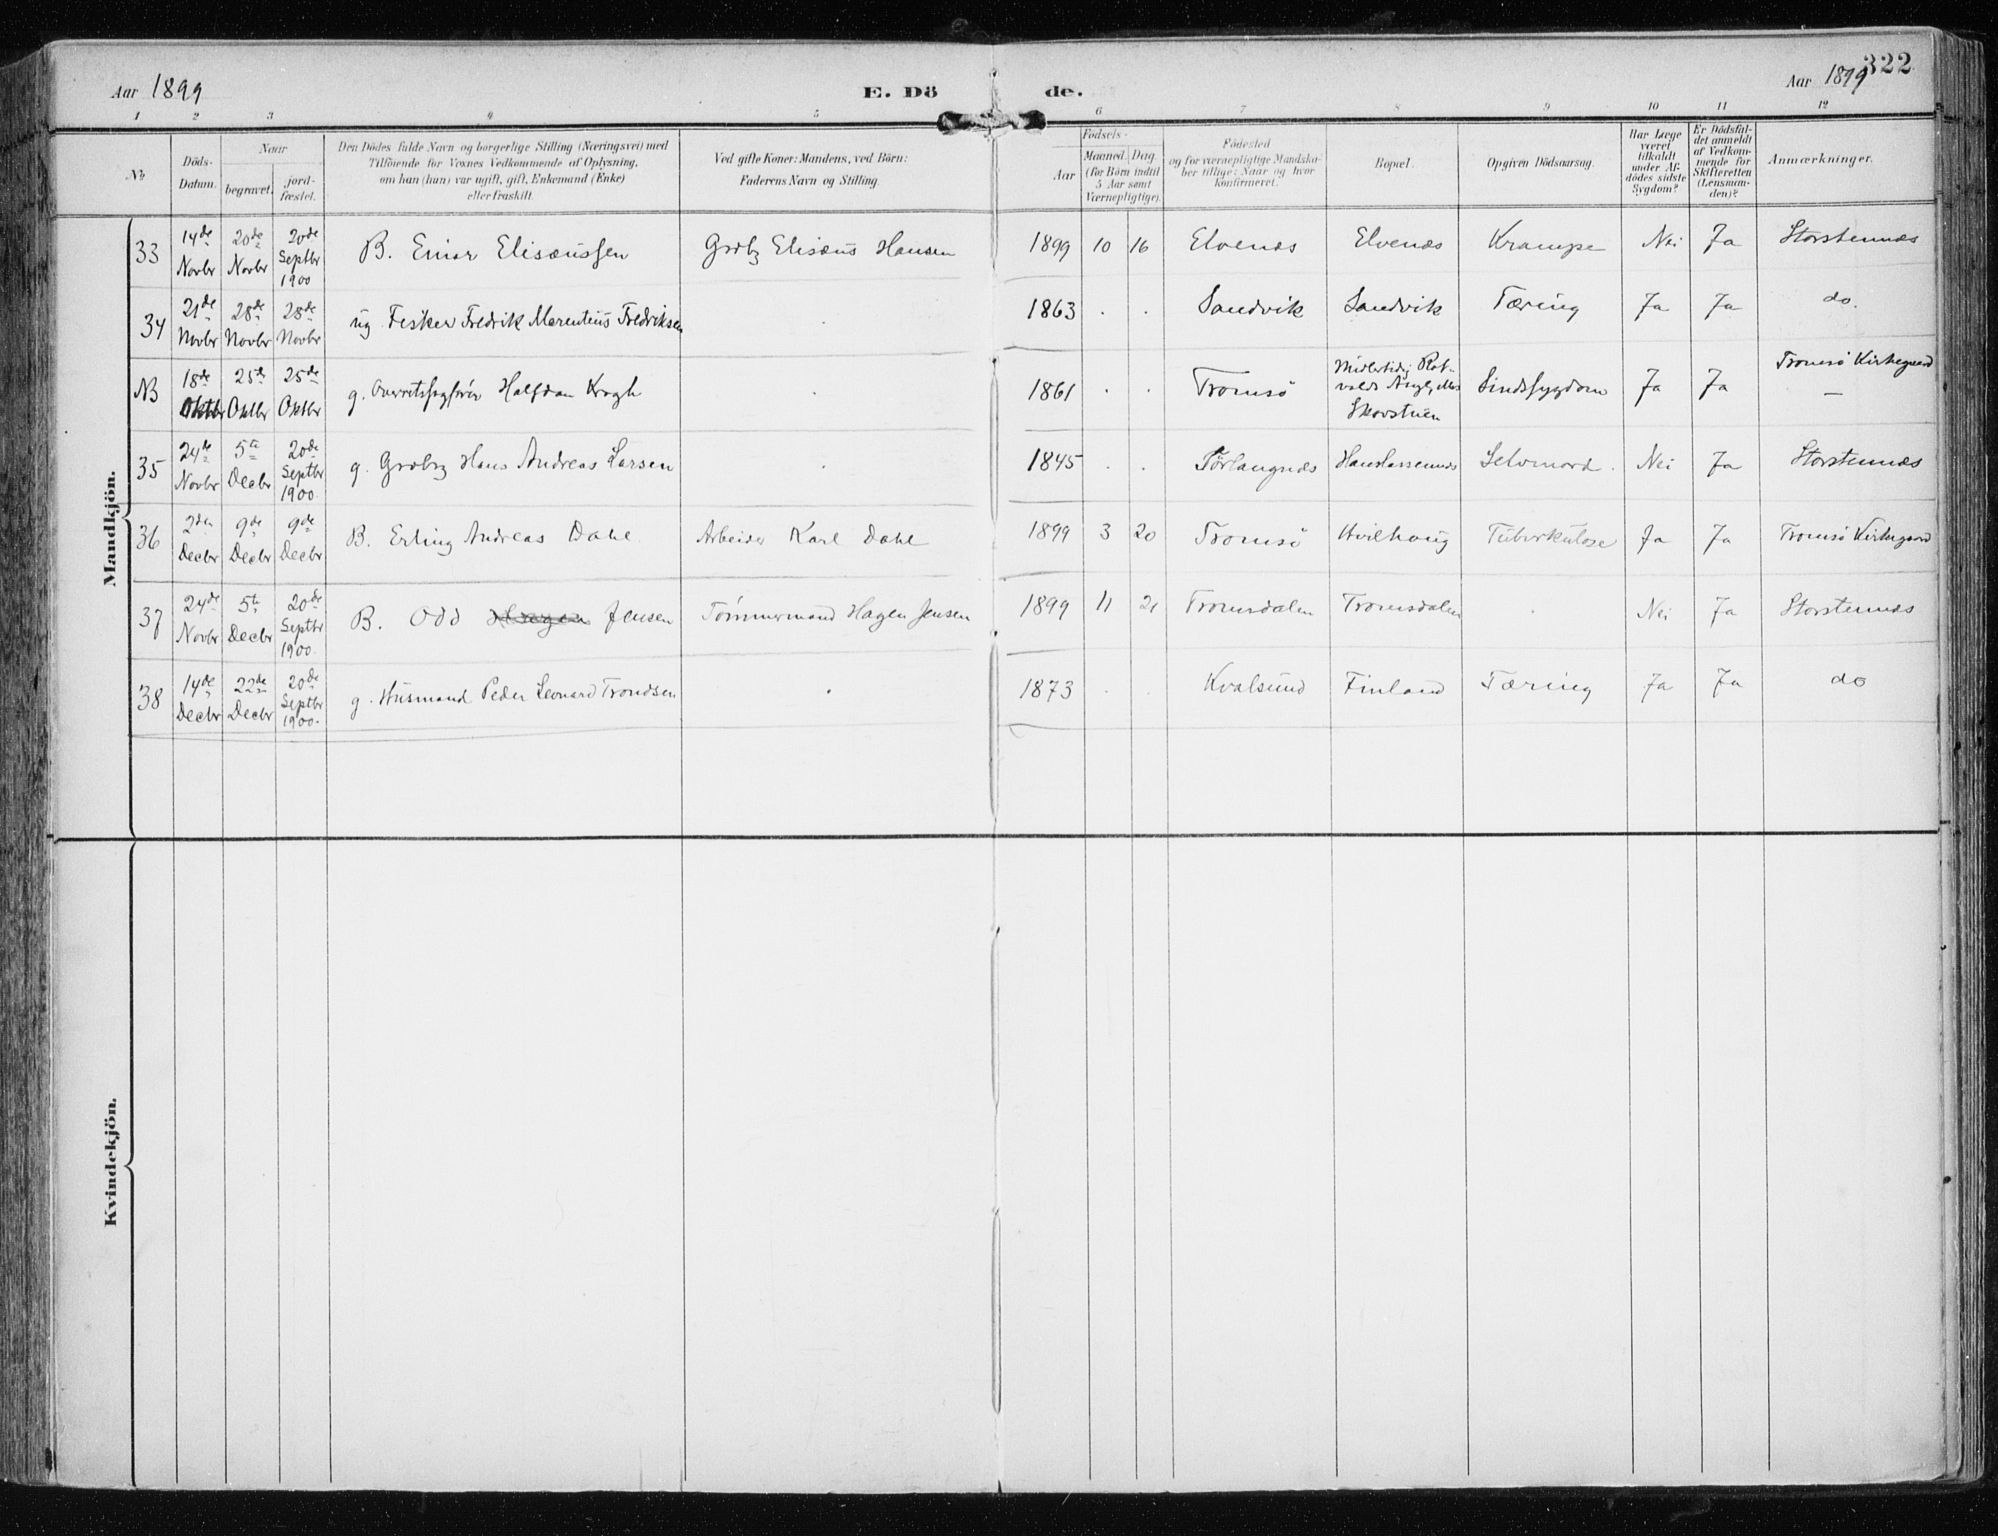 Aar 1899 E. Dö de. Aar 1899 322
1 2 3 4 5 6 7 8 9 10 11 12
No
Döds-
Datum.
Naar
begravet.
jord-
fæstet.
Den Dödes fulde Navn og borgerlige Stilling (Næringsvei) med
Tilföiende for Voxnes Vedkommende af Oplysning,
om han (hun) var ugift, gift, Enkemand (Enke)
eller fraskilt.
Ved gifte Koner: Mandens, ved Börn:
Faderens Navn og Stilling.
Födsels-
Aar
Maaned. Dag.
(for Börn indtil
5 Aar samt
Værnepligtige).
Födested
og for værnepligtige Mandska-
ber tillige: Naar og hvor
konfirmeret.
Bopæl.
Opgiven Dödsaarsag.
Har Læge
været
tilkaldt
under Af-
dödes sidste
Sygdom?
Er Dödsfal-
det anmeldt
af Vedkom-
mende for
Skifteretten
(Lensman-
den)?
Anmærkninger.
Mandkjön.
33 14de Novbr 20de Novbr 20de Septbr 1900 B. Einar Elisæussen Grdbg Elisæus Hansen 1899 10 16 Elvenæs Elvenæs Krampe Nei Ja Storstennæs
34 21de Novbr 28de Novbr 28de Novbr ug. Fisker Fredrik Marentius Fredriksen 1863 . . Sandvik Sandvik Tæring Ja Ja do.
NB 18de Oktbr 25de Oktbr 25de Oktbr g. Overretssagfører Halfdan Krogh 1861 . . Tromsö Midlertidig Rot-
volds Asyl, Skovstuen Sindssygdom Ja Ja Tromsö Kirkegaard
—
35 24de Novbr 5te Decbr 20de Septbr 1900. g. Grdbrg Hans Andreas Larsen 1845 . . Hanslarsennæs Selvmord. Nei Ja Storstennæs
36 2den Decbr 9de Decbr 9de Decbr B. Erling Andreas Dahl Arbeider Karl Dahl 1899 3 20 Tromsö Hvilhaug Tuberkulose Ja Ja Tromsö Kirkegaard
37 24de Novbr 5te Decbr 20de Septbr 1900. B. Odd Hagen Jensen Tömmermand Hagen Jensen 1899 11 21 Tromsdalen Tromsdalen . Nei Ja Storstennæs
38 14de Decbr 22de Decbr 20de Septbr 1900. g. Husmand Peder Leonard Trondsen 1873 . . Kvalsund Finland Tæring Ja Ja do
Kvindekjön.